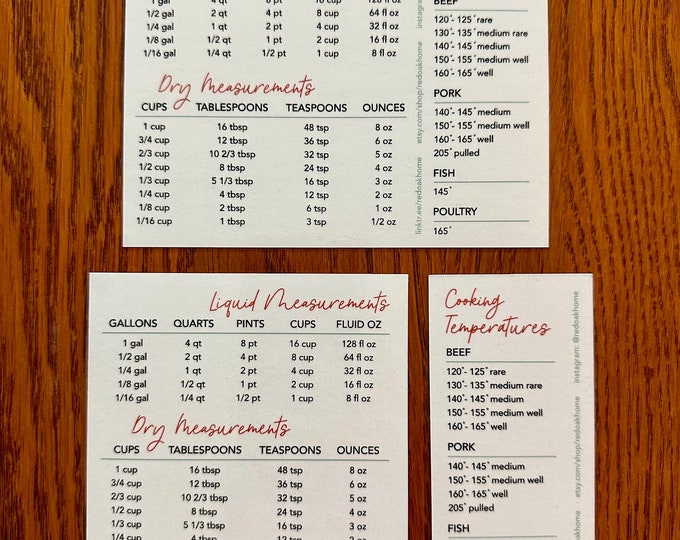 1 gal 4 qt 8 pt 16 cup 128 fl oz
1/2 gal 2 qt 4 pt 8 cup 64 fl oz
1/4 gal 1 qt 2 pt 4 cup 32 fl oz
1/8 gal 1/2 qt 1 pt 2 cup 16 fl oz
1/16 gal 1/4 qt 1/2 pt 1 cup 8 fl oz
Dry Measurements
CUPS TABLESPOONS TEASPOONS OUNCES
1 cup 16 tbsp 48 tsp 8 oz
3/4 cup 12 tbsp 36 tsp 6 oz
2/3 cup 10 2/3 tbsp 32 tsp 5 oz
1/2 cup 8 tbsp 24 tsp 4 oz
1/3 cup 5 1/3 tbsp 16 tsp 3 oz
1/4 cup 4 tbsp 12 tsp 2 oz
1/8 cup 2 tbsp 6 tsp 1 oz
1/16 cup 1 tbsp 3 tsp 1/2 oz
linktr.ee/redoakhome etsy.com/shop/redoakhome instagram:
BEEF
120°- 125° rare
130°- 135° medium rare
140°- 145° medium
150°- 155° medium well
160°- 165° well
PORK
140°- 145° medium
150°- 155° medium well
160°- 165° well
205° pulled
FISH
145°
POULTRY
165°
Liquid Measurements
GALLONS QUARTS PINTS CUPS FLUID OZ
1 gal 4 qt 8 pt 16 cup 128 fl oz
1/2 gal 2 qt 4 pt 8 cup 64 fl oz
1/4 gal 1 qt 2 pt 4 cup 32 fl oz
1/8 gal 1/2 qt 1 pt 2 cup 16 fl oz
1/16 gal 1/4 qt 1/2 pt 1 cup 8 fl oz
Dry Measurements
CUPS TABLESPOONS TEASPOONS OUNCES
1 cup 16 tbsp 48 tsp 8 oz
3/4 cup 12 tbsp 36 tsp 6 oz
2/3 cup 10 2/3 tbsp 32 tsp 5 oz
1/2 cup 8 tbsp 24 tsp 4 oz
1/3 cup 5 1/3 tbsp 16 tsp 3 oz
1/4 cup 4 tbsp 12 tsp 2 oz
Cooking
Temperatures
BEEF
120°- 125° rare
130°- 135° medium rare
140°- 145° medium
150°- 155° medium well
160°- 165° well
PORK
140°- 145° medium
150°- 155° medium well
160°- 165° well
205° pulled
FISH
etsy.com/shop/redoakhome instagram: @redoakhome